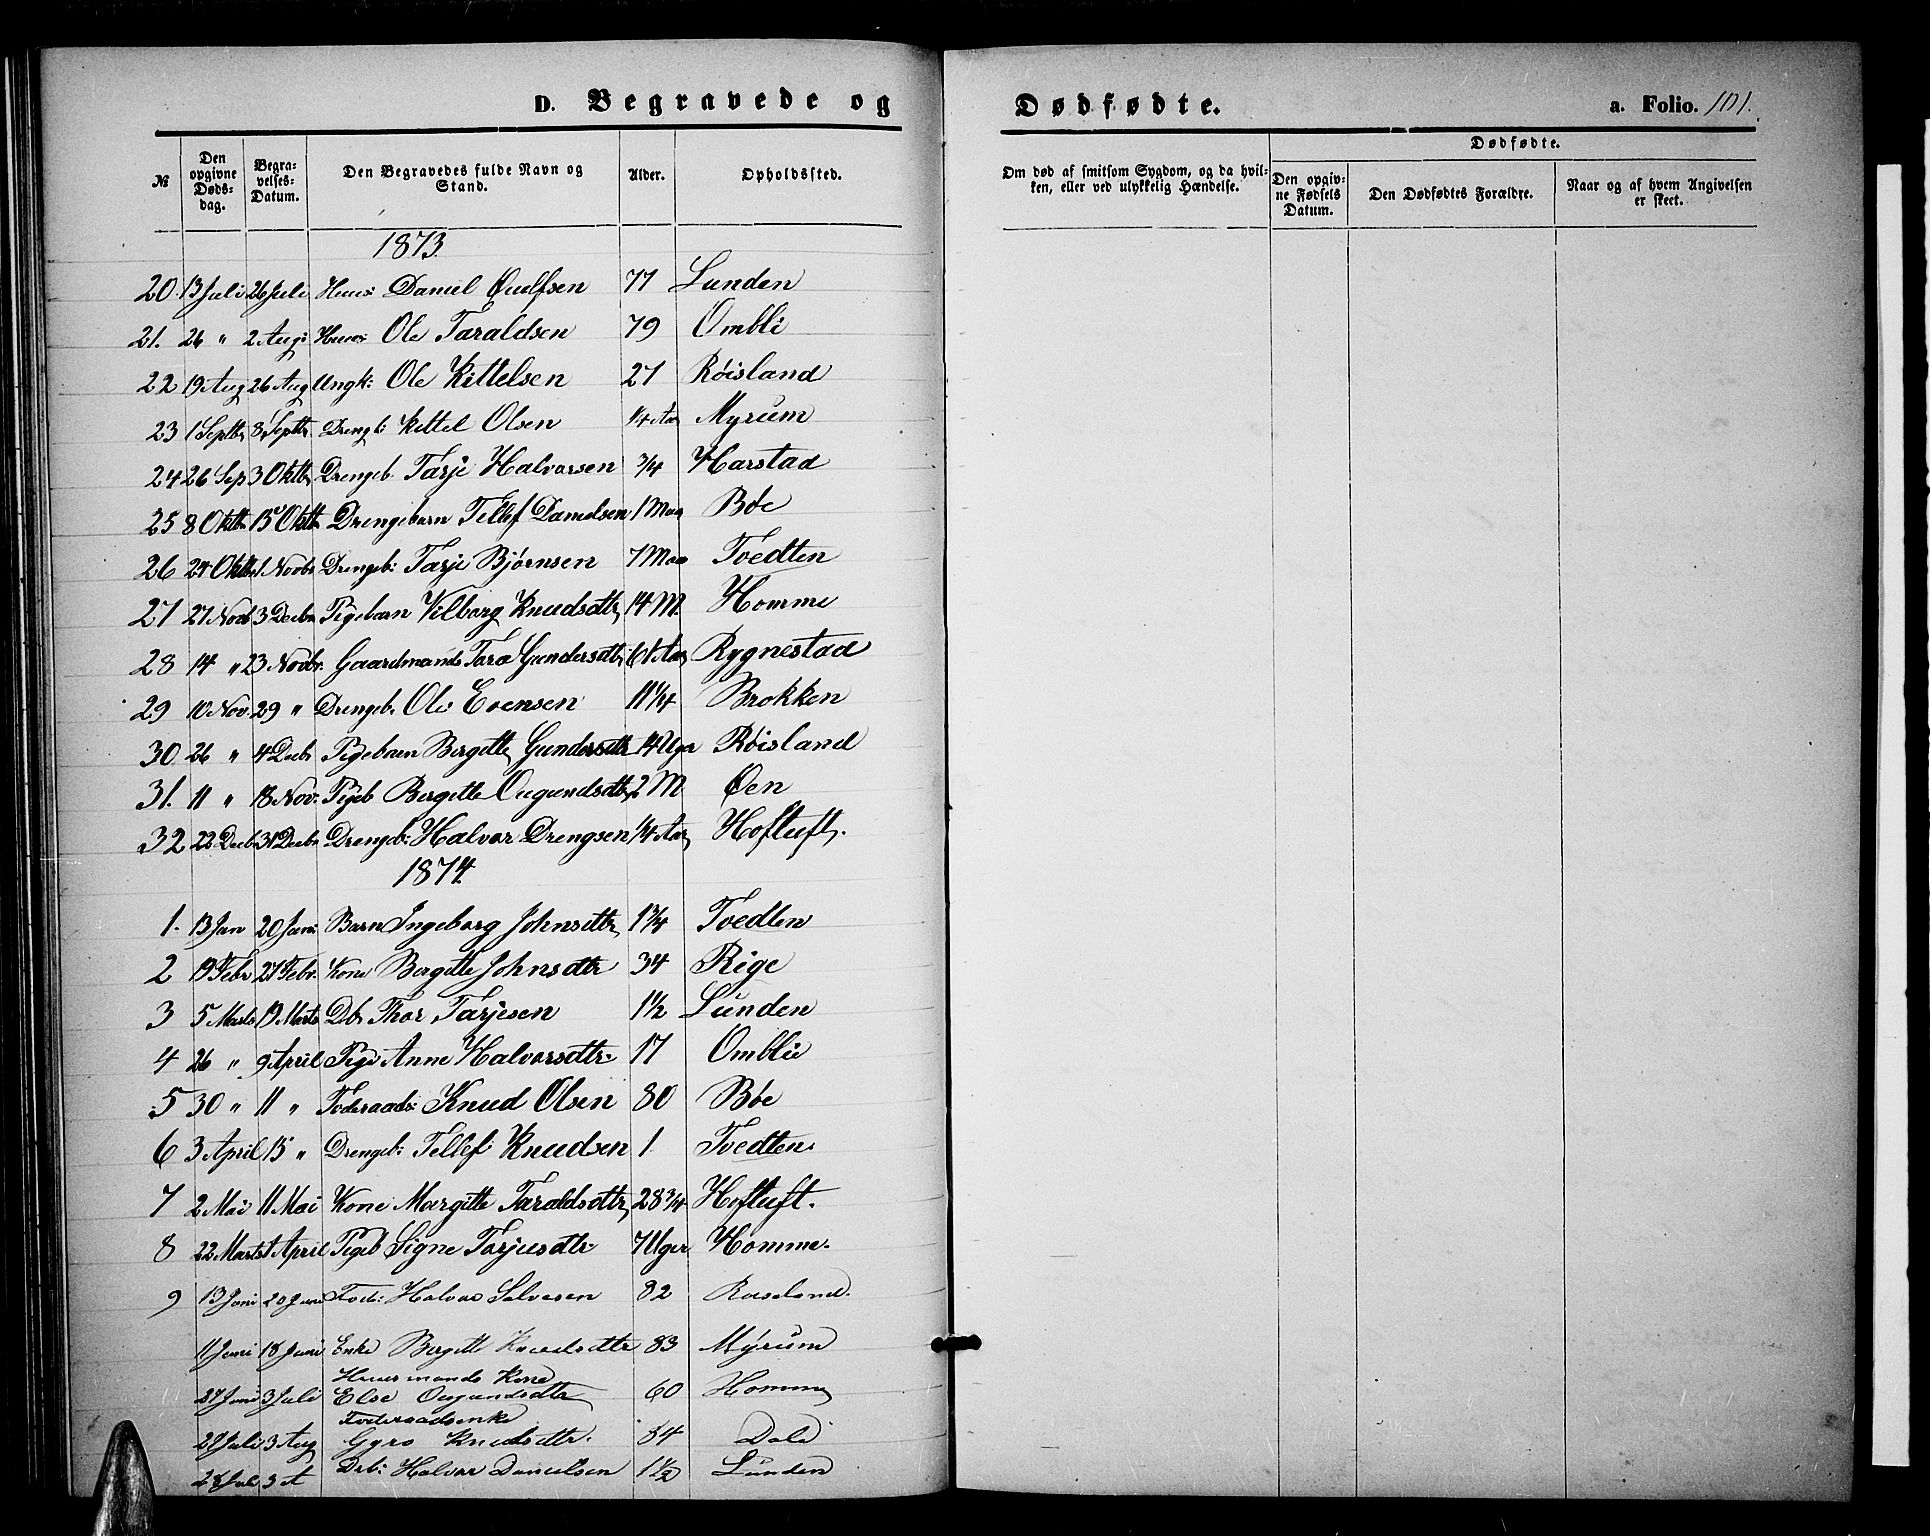 D. Begravede og
№
Den opgivne Døds-dag.
Begra-velses-Datum.
Den Begravedes fulde Navn og Stand.
Alder.
Opholdssted.
1873.
20. 13 Juli 26 Juli Huus: Daniel Oudfsen 77 Lunden
21. 26 " 2 Aug: Huus: Ole Taraldsen 79 Ombli
22 19 Aug 26 Aug Ungk: Ole Kittelsen 27 Røisland
23 1 Septbr 8 Septbr Drengb: Kittel Olsen 1/4 Aar Myrum
24 26 Sep 3 Oktbr Drengeb. Tarje Halvorsen 3/4 Harstad
25 8 Oktbr 15 Oktbr Drengebarn Tellef Danielsen 1 Maa Bøe
26 24 Oktbr 1. Novbr Drengeb: Tarje Bjørnsen 7 Maa Tvedten
27 27 Novb 3 Decbr Pigebarn Vilborg Knudsdtr 14 M. Homme
28 14 " 23 Novbr. Gaardmands Tara Gundersdtr 61 Aar Rygnestad
29 10 Nov. 29 " Drengeb. Ole Evensen 11 1/4 Brokken
30 26 " 4 Decbr Pigebarn Bergitte Gundersdtr 14 Uger Røisland
31. 11 " 18 Nov: Pigeb Bergitte Ougundsdtr 2 M Øen
32 22 Decb 31 Decbr Drengeb: Halvor Drengsen 1/4 Aar Hoftuft.
1874.
1. 13 Jan 20 Jan: Barn Ingeborg Johnsdtr 1 3/4 Tvedten
2 19 Febr 27 Febr. Kone Bergitte Johnsdtr 34 Rige
3 5 Marts 19 Marts Db. Thor Tarjesen 1 1/2 Lunden
4 26 " 9 April Pige Anne Halvorsdtr. 17 Omblie
5 30 " 11 " Foderaads: Knud Olsen 80 Bøe
6 3 April 15 " Drengeb: Tellef Knudsen 1. Tvedten.
7 2 Mai 11 Mai Kone Margitte Taraldsdtr 28 3/4 Hoftuft.
8 22 Marts 1 April Pigeb Signe Tarjesdtr. 7 Uger Homme.
9 13 Juni 20 Juni Fod: Halvor Salvesen 82 Røiseland.
11 Juni 18 Juni Enke Bergitte Knudsdtr 83 Myrum
Huusmands Kone
27 Juni 3 Juli Else Ougundsdtr 60 Homme
Foderaadsenke
28 Juli 3 Aug Gyro Knudsdtr. 84 Dale
28 Juli 3 A Drb: Halvor Danielsen 1 1/2 Lunden
Dødfødte.
a. Folio. 101.
Om død af smitsom Sygdom, og da hvil-ken, eller ved ulykkelig Hændelse.
Dødfødte.
Den opgiv-ne Fødsels Datum.
Den Dødfødtes Forældre.
Naar og af hvem Angivelsen er skeet.